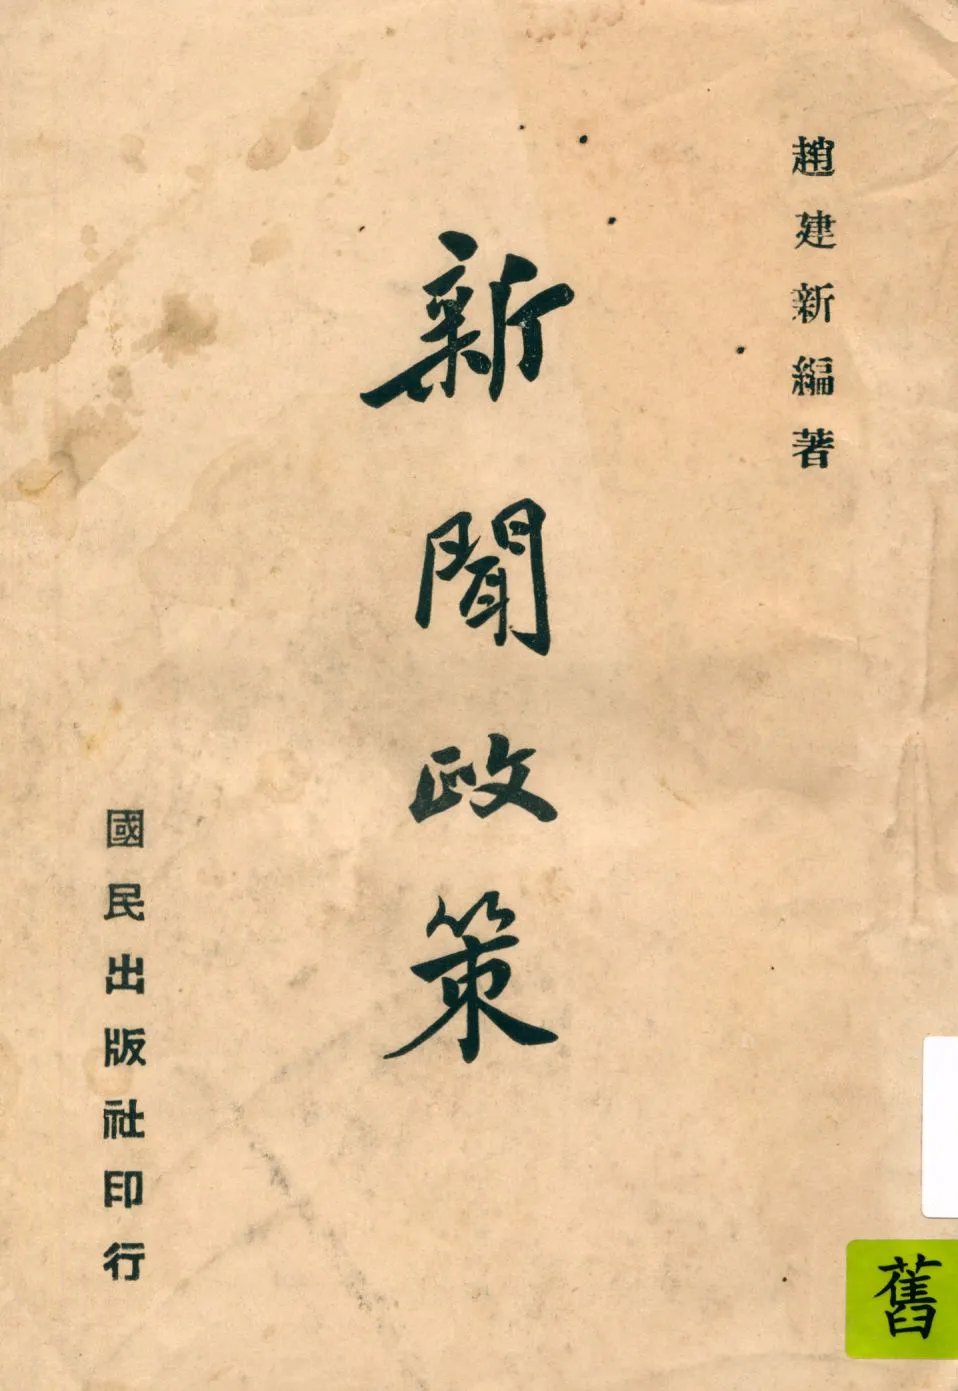 趙建新編著
新聞政策
國民出版社印行
舊